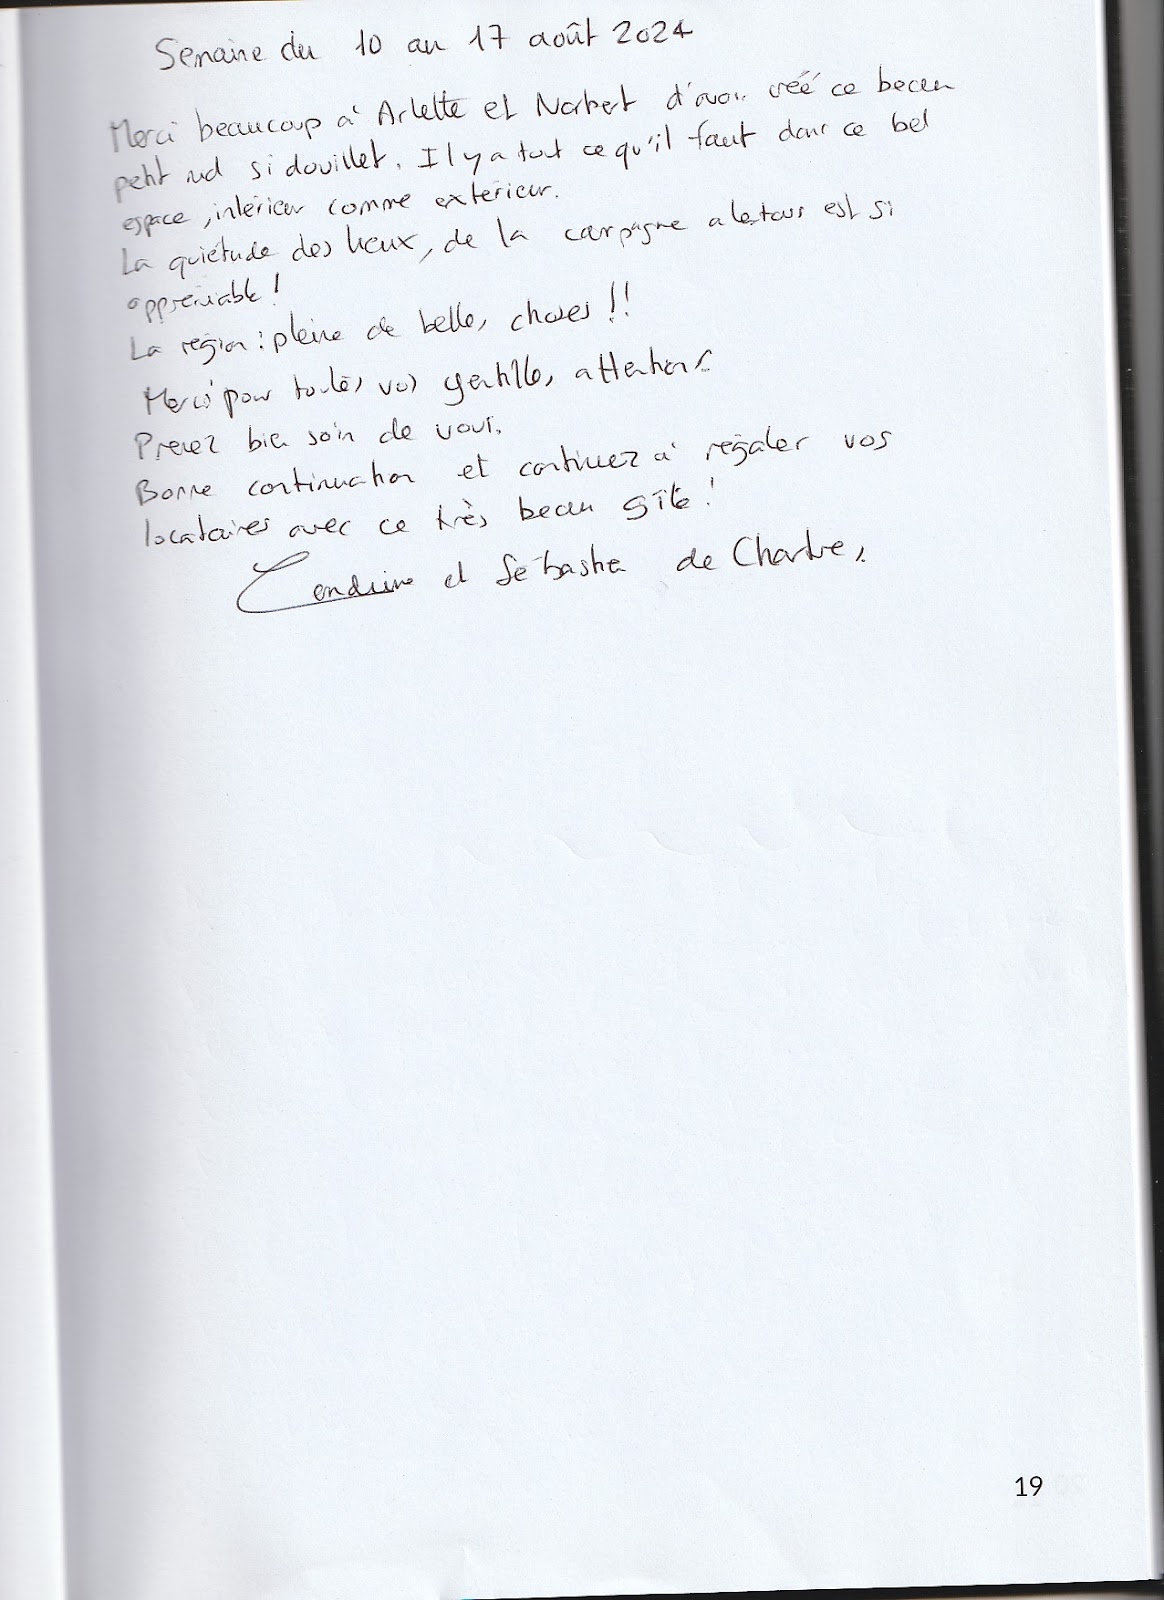 Semaine du 10 au 17 août 2024
Merci beaucoup à Arlette et Norbert d'avoir créé ce beau
petit nid si douillet. Il y a tout ce qu'il faut dans ce bel
espace, intérieur comme extérieur.
La quiétude des lieux, de la campagne alentour est si
appréciable !
La région : pleine de belles choses !!
Merci pour toutes vos gentilles attentions
Prenez bien soin de vous.
Bonne continuation et continuez à régaler vos
locataires avec ce très beau gîte !
et Sébastien de Chartres.
19